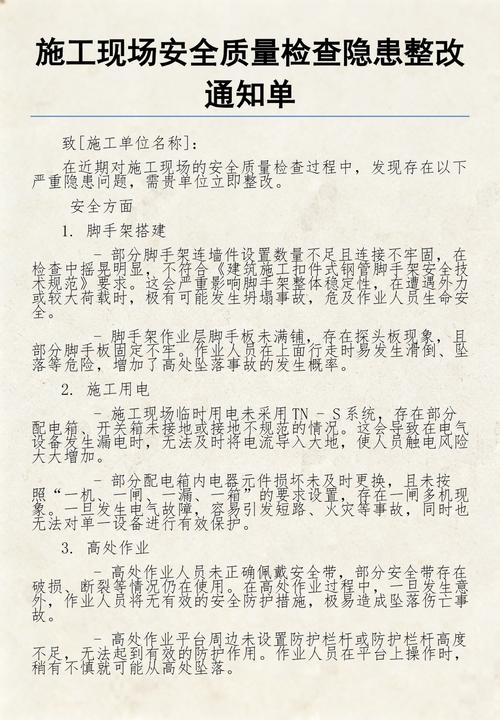 施工现场安全质量检查隐患整改
通知单
致[施工单位名称]:
在近期对施工现场的安全质量检查过程中，发现存在以下
严重隐患问题，需贵单位立即整改。
安全方面
1. 脚手架搭建
- 部分脚手架连墙件设置数量不足且连接不牢固，在
检查中摇晃明显，不符合《建筑施工扣件式钢管脚手架安全技
术规范》要求。这会严重影响脚手架整体稳定性，在遭遇外力
或较大荷载时，极有可能发生坍塌事故，危及作业人员生命安
全。
- 脚手架作业层脚手板未满铺，存在探头板现象，且
部分脚手板固定不牢。作业人员在上面行走时易发生滑倒、坠
落等危险，增加了高处坠落事故的发生概率。
2. 施工用电
- 施工现场临时用电未采用TN - S系统，存在部分
配电箱、开关箱未接地或接地不规范的情况。这会导致在电气
设备发生漏电时，无法及时将电流导入大地，使人员触电风险
大大增加。
- 部分配电箱内电器元件损坏未及时更换，且未按
照“一机、一闸、一漏、一箱”的要求设置，存在一闸多机现
象。一旦发生电气故障，容易引发短路、火灾等事故，同时也
无法对单一设备进行有效保护。
3. 高处作业
- 高处作业人员未正确佩戴安全带，部分安全带存在
破损、断裂等情况仍在使用。在高处作业过程中，一旦发生意
外，作业人员将无有效的安全防护措施，极易造成坠落伤亡事
故。
- 高处作业平台周边未设置防护栏杆或防护栏杆高度
不足，无法起到有效的防护作用。作业人员在平台上操作时，
稍有不慎就可能从高处坠落。